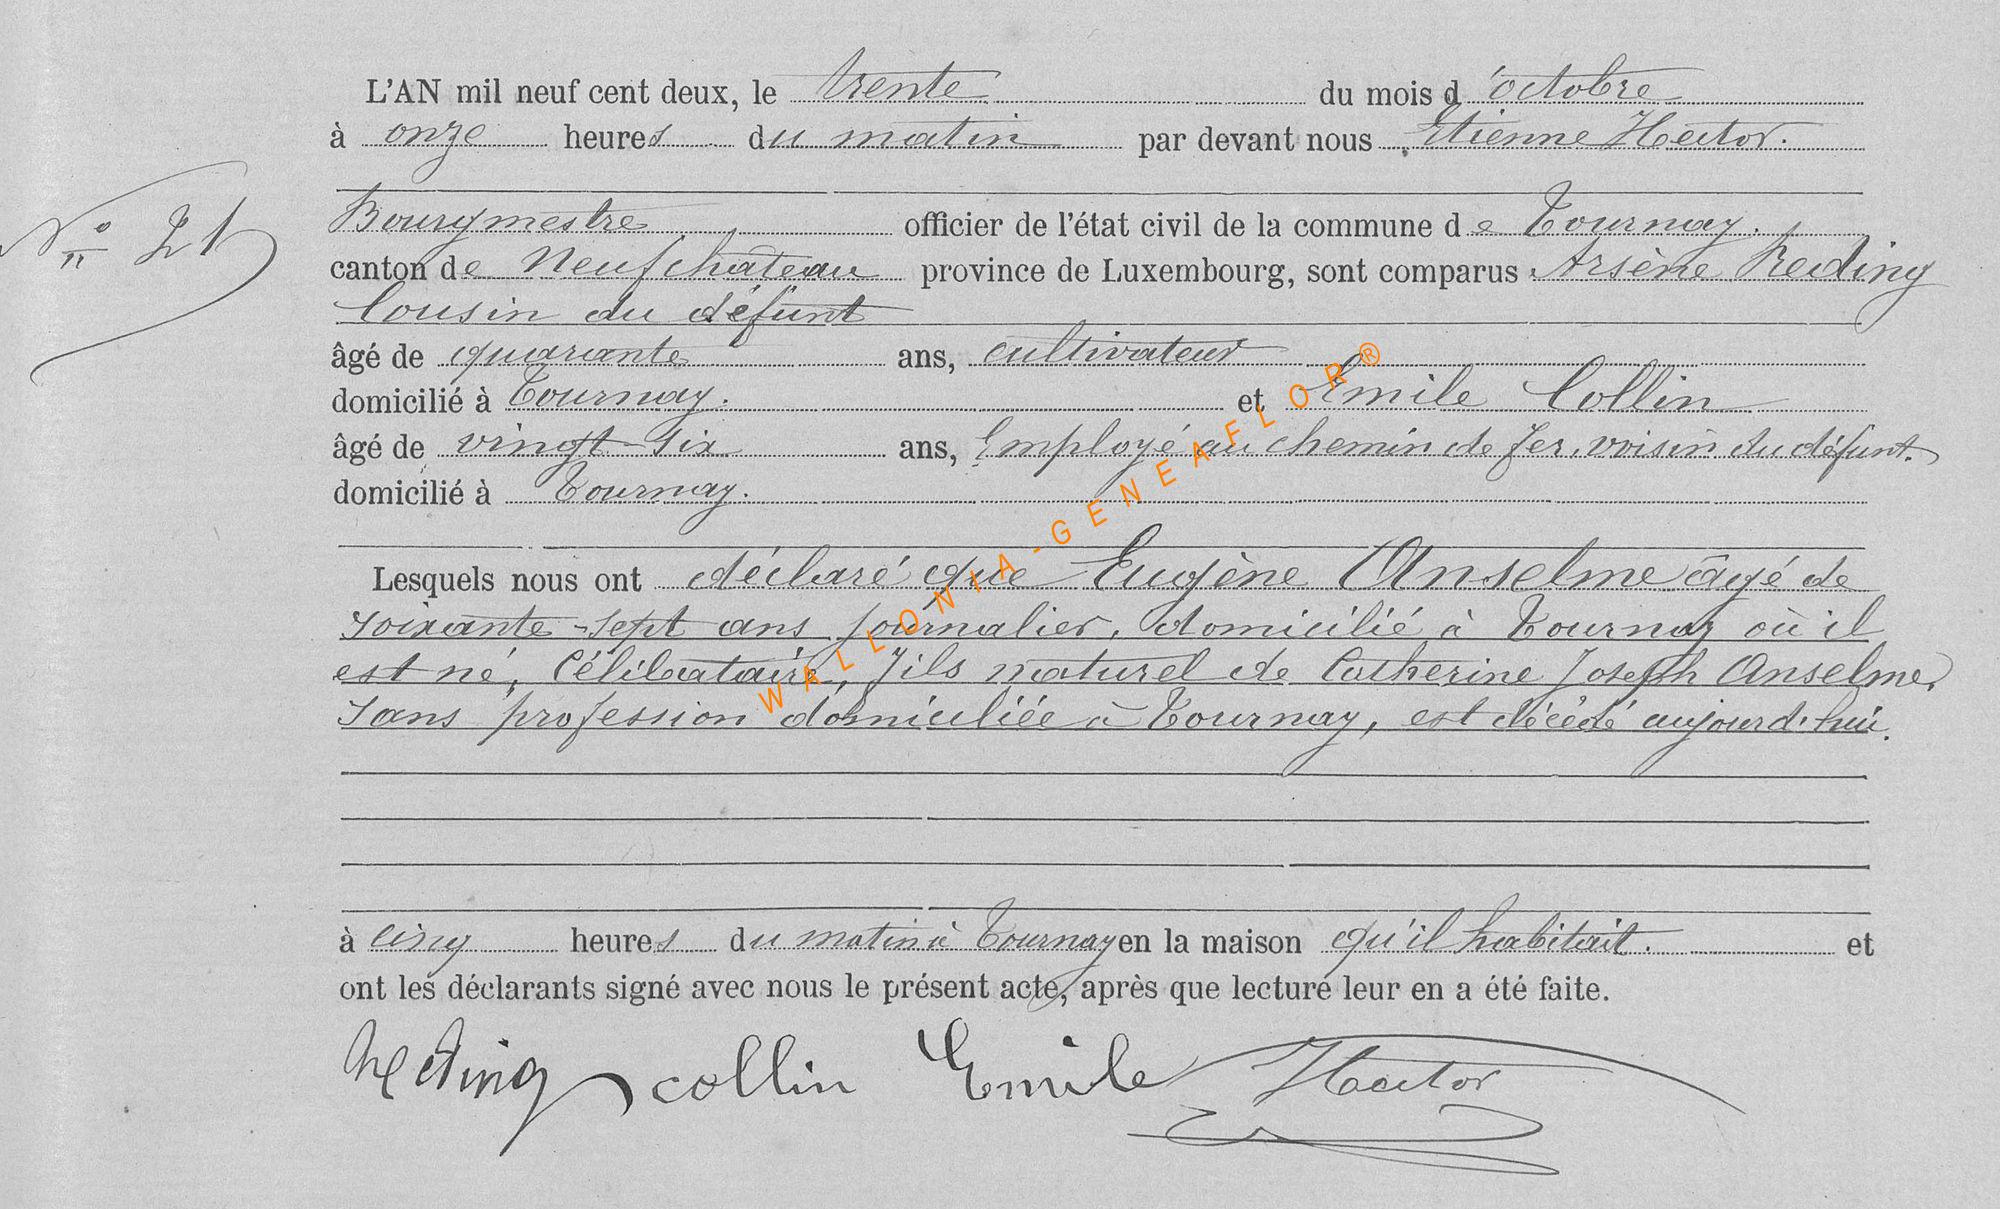 L'AN mil neuf cent deux, le trente du mois d'octobre
à onze heures du matin par devant nous Etienne Hector.
N° 21
Bourgmestre officier de l'état civil de la commune de Tournay.
canton de Neufchâteau province de Luxembourg, sont comparus Arsène Reding
Cousin du défunt
âgé de quarante ans, cultivateur
domicilié à Tournay. et Emile Collin
âgé de vingt six ans, Employé au chemin de fer, voisin du défunt.
domicilié à Tournay.
Lesquels nous ont déclaré que Eugène Anselme âgé de
soixante-sept ans journalier, domicilié à Tournay où il
est né, Célibataire, fils naturel de Catherine Joseph Anselme,
sans profession domiciliée à Tournay, est décédé aujourd'hui.
à cinq heures du matin à Tournay en la maison qu'il habitait. et
ont les déclarants signé avec nous le présent acte, après que lecture leur en a été faite.
Reding collin Emile Hector
WALLONIA-GENEAFLOR®